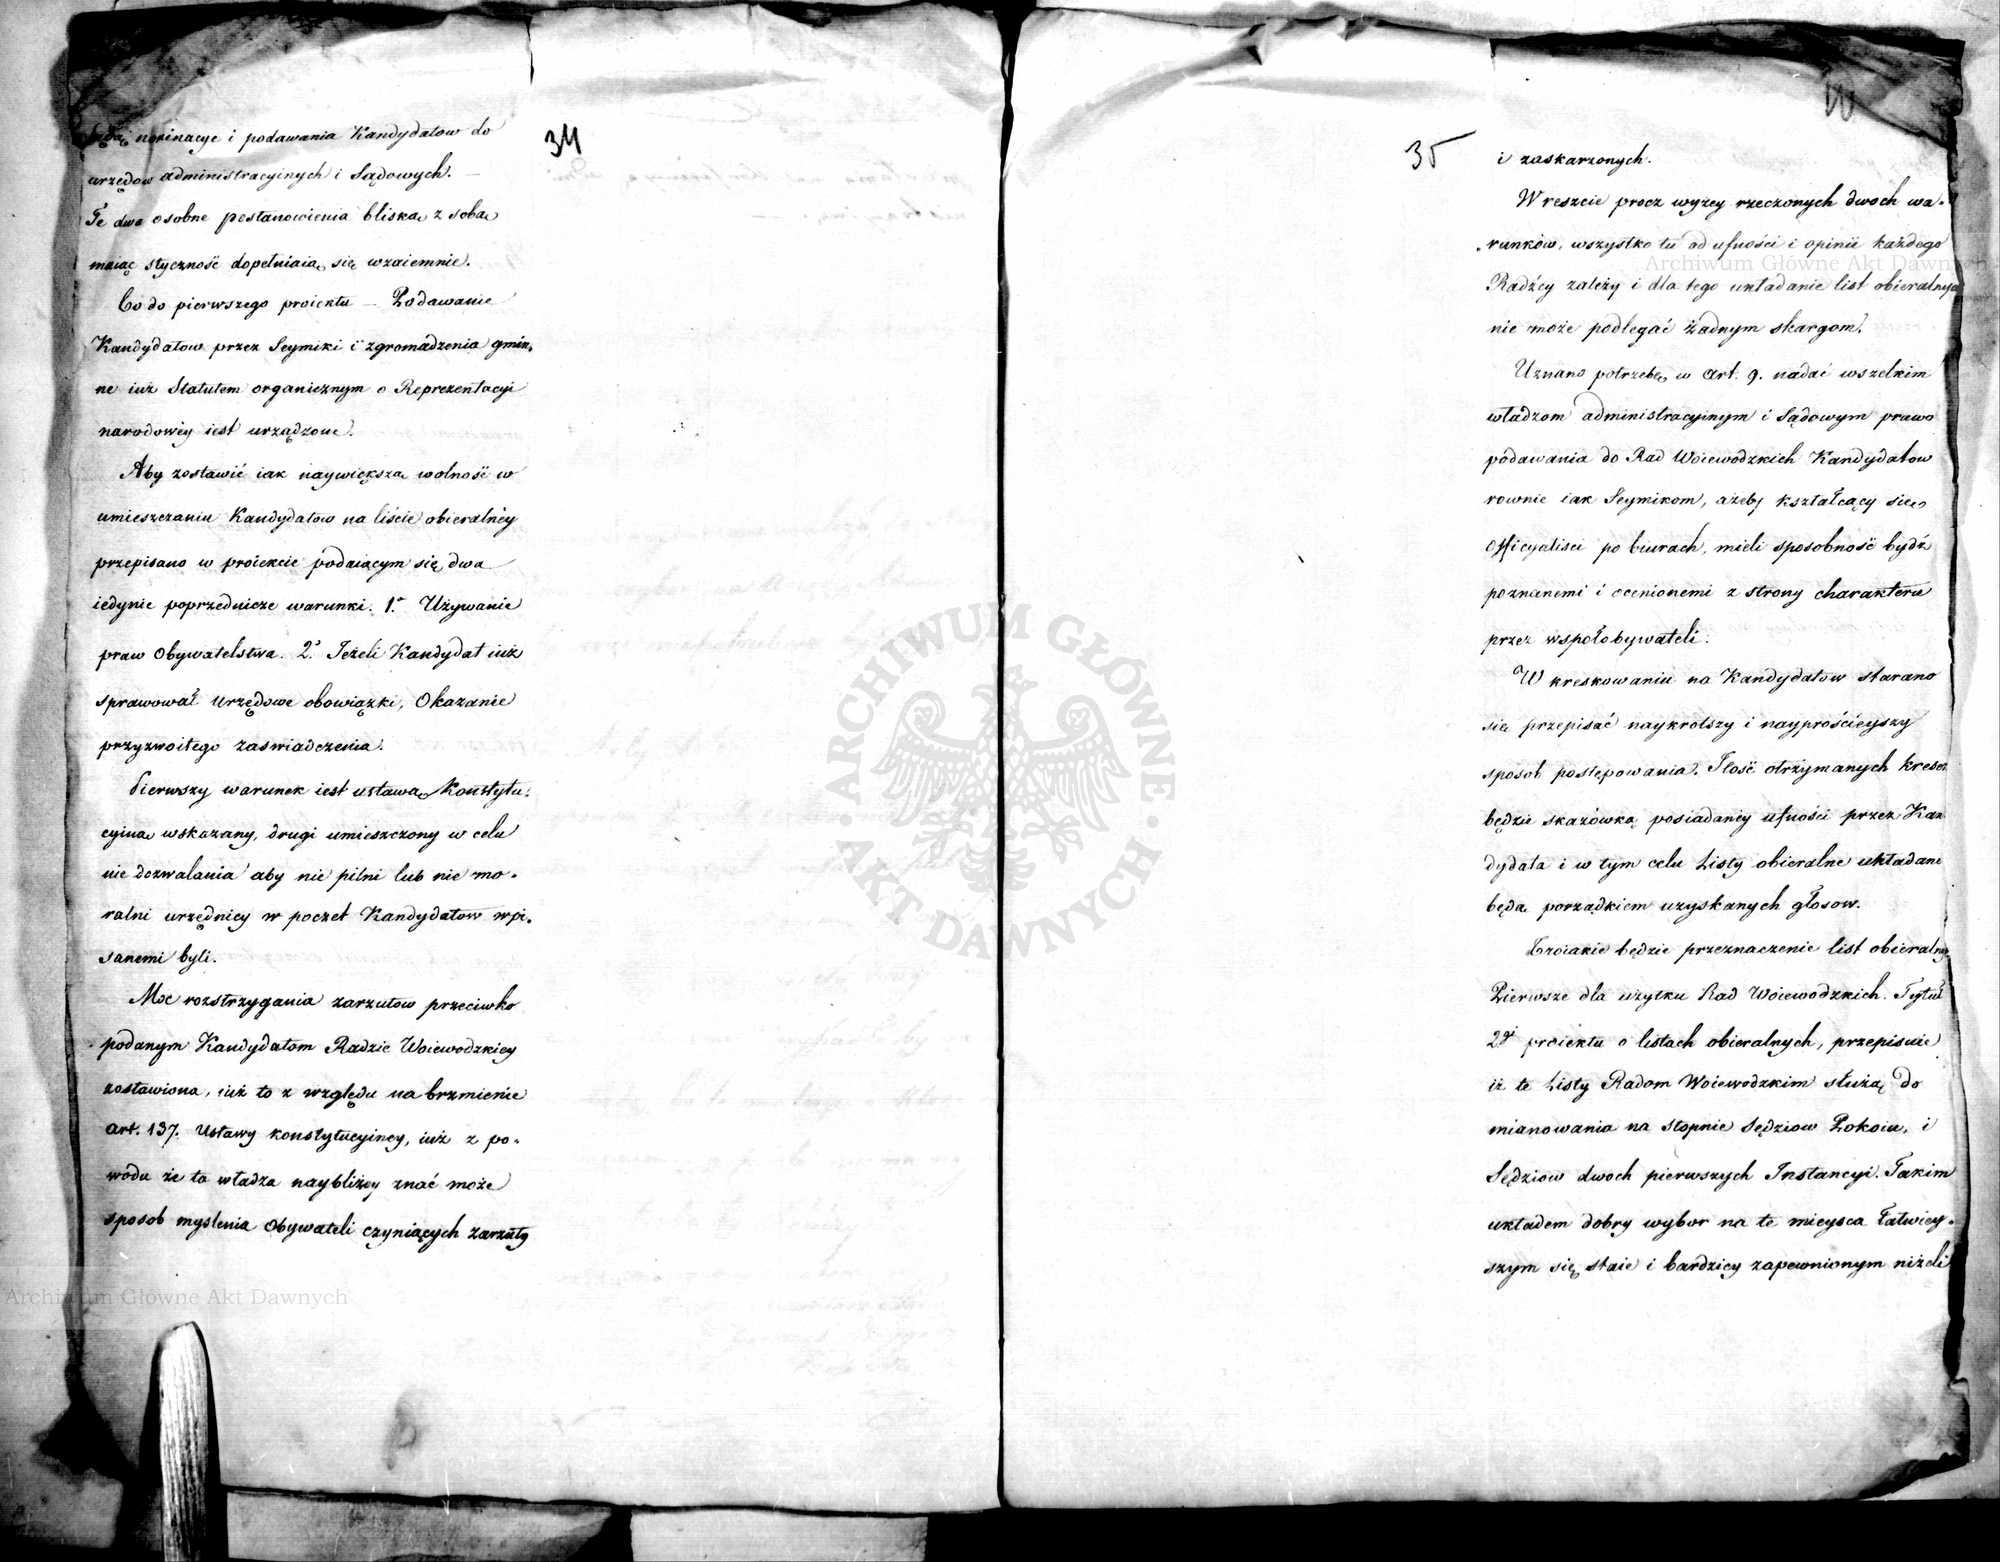 34
nominacye i podawania Kandydatow do
urzędow administracyinych i Sądowych. —
Te dwa osobne postanowienia bliską z sobą
maiąc styczność dopełniaią się wzaiemnie.
Co do pierwszego proiektu — Podawanie
Kandydatow przez Seymiki i zgromadzenia gmin-
ne iuż Statutem organicznym o Reprezentacyi
narodowéy iest urządzone.
Aby zostawić iak naywiększą wolność w
umieszczaniu Kandydatow na liście obieralnéy
przepisano w proiekcie podaiącym się dwa
iedynie poprzednicze warunki. 1.º Używanie
praw Obywatelstwa. 2.º Jeżeli Kandydat iuż
sprawował urzędowe obowiązki, Okazanie
przyzwoitego zaswiadczenia.
Pierwszy warunek iest ustawą Konstytu-
cyiną wskazany, drugi umieszczony w celu
nie dozwalania aby nie pilni lub nie mo-
ralni urzędnicy w poczet Kandydatow wpi-
sanemi byli.
Moc rozstrzygania zarzutow przeciwko
podanym Kandydatom Radzie Woiewodzkiey
zostawiona, iuż to z względu na brzmienie
art. 137. Ustawy konstytucyiney, iuż z po-
wodu że ta władza naybliżey znać może
sposob myslenia Obywateli czyniących zarzuty
35
i zaskarzonych.
W reszcie procz wyżey rzeczonych dwoch wa-
runków, wszystko tu od ufności i opinii każdego
Radźcy zależy i dla tego układanie list obieralnych
nie może podlegać żadnym skargom.
Uznano potrzebę w art. 9. nadać wszelkim
władzom administracyinym i Sądowym prawo
podawania do Rad Woiewodzkich Kandydatow
rownie iak Seymikom, ażeby kształcący się
Officyalisci po biurach, mieli sposobność bydź
poznanemi i ocenionemi z strony charakteru
przez wspołobywateli.
W kreskowaniu na Kandydatow starano
się przepisać naykrotszy i nayprościeyszy
sposob postępowania. Ilość otrzymanych kresek
będzie skazówką posiadaney ufności przez Kan
dydata i w tym celu Listy obieralne układane
będą porządkiem uzyskanych głosow.
Troiakie będzie przeznaczenie list obieralny
Pierwsze dla użytku Rad Woiewodzkich. Tytuł
2gi proiektu o listach obieralnych, przepisuie
iż te Listy Radom Woiewodzkim służą do
mianowania na stopnie Sędziow Pokoiu, i
Sędziow dwoch pierwszych Instancyi. Takim
układem dobry wybor na te mieysca łatwiey-
szym się staie i bardziey zapewnionym niżeli
Archiwum Główne Akt Dawnych
Archiwum Główne Akt Dawnych
· ARCHIWUM GŁÓWNE · AKT DAWNYCH